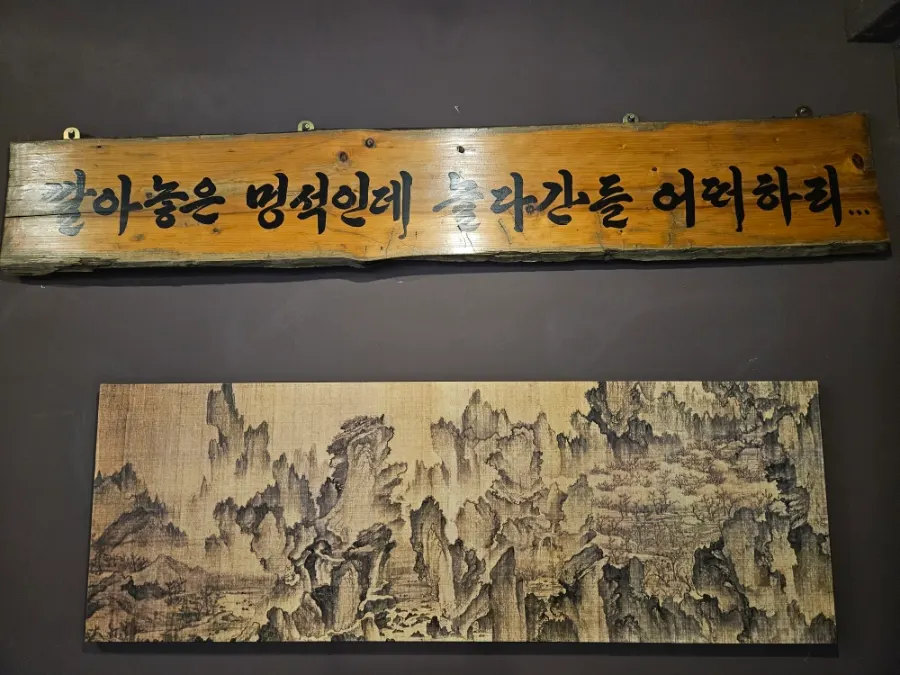 깔아놓은 멍석인데 놀다간들 어떠하리...